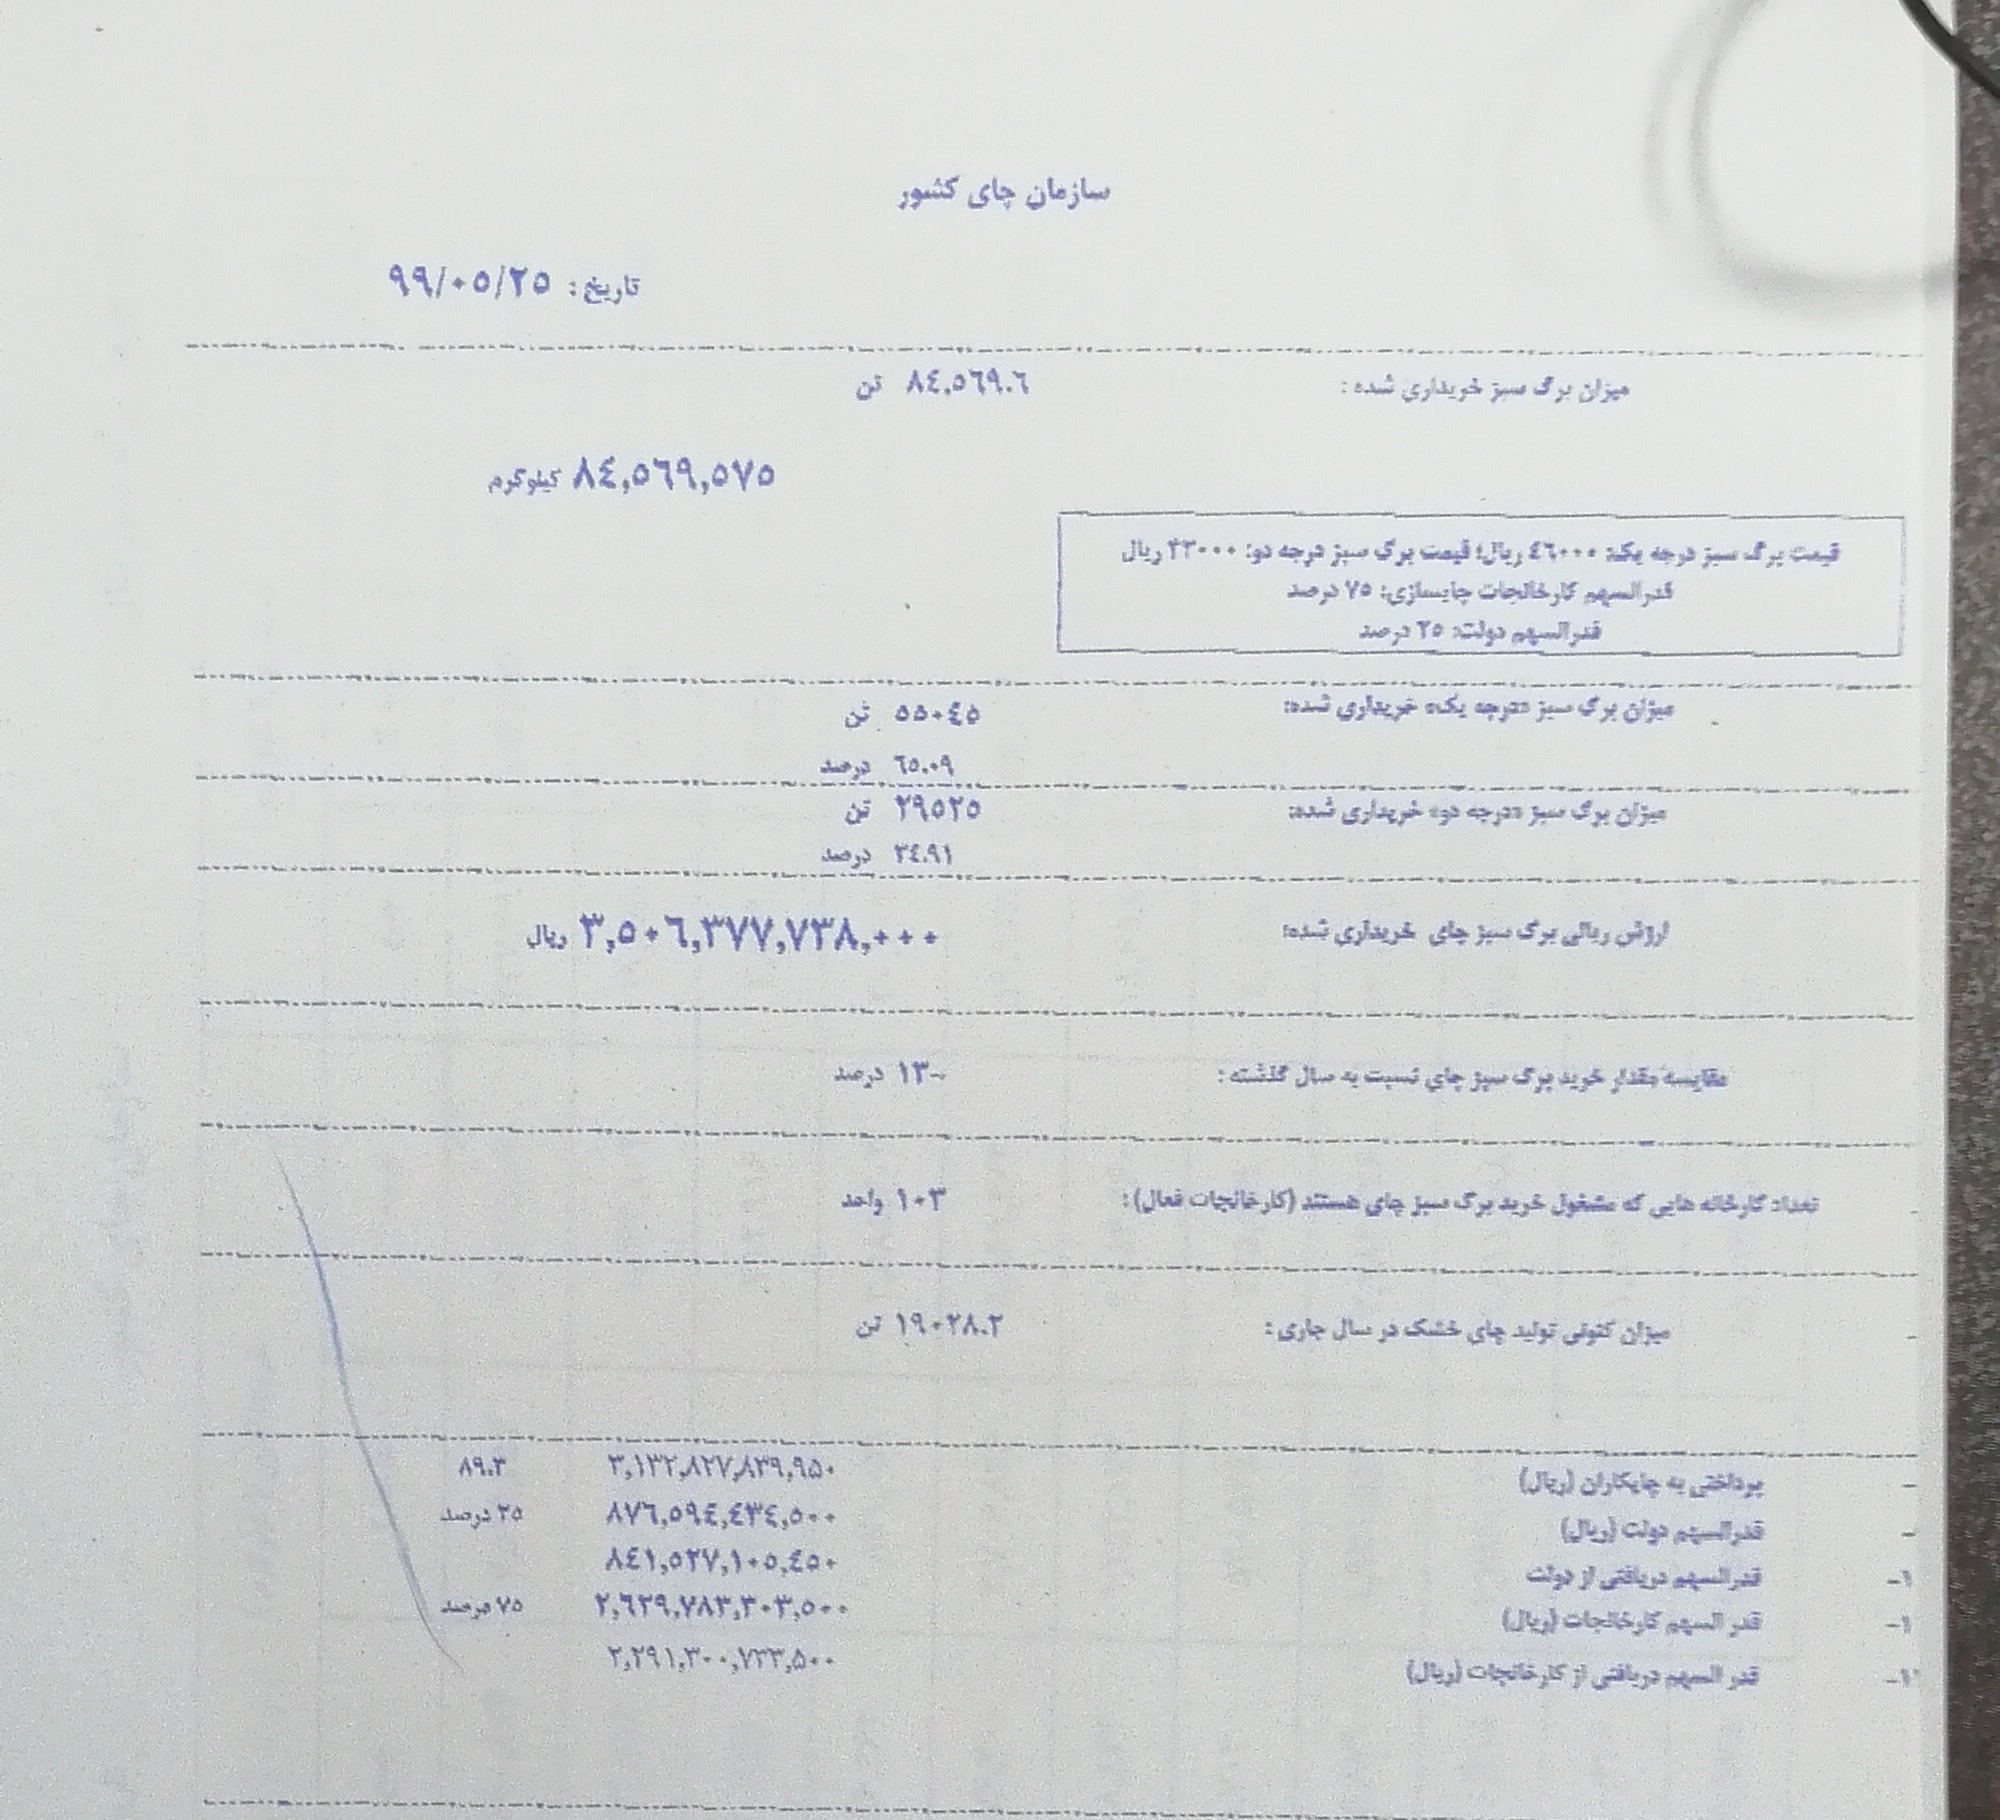 سازمان چای کشور
تاریخ : ٩٩/٠٥/٢٥
میزان برگ سبز خریداری شده : ٨٤,٥٦٩.٦ تن
٨٤,٥٦٩,٥٧٥ کیلوگرم
قیمت برگ سبز درجه یک: ٤٦٠٠٠ ریال؛ قیمت برگ سبز درجه دو: ٣٣٠٠٠ ریال
قدرالسهم کارخانجات چایسازی: ٧٥ درصد
قدرالسهم دولت: ٢٥ درصد
میزان برگ سبز «درجه یک» خریداری شده: ٥٥٠٤٥ تن
٦٥.٠٩ درصد
میزان برگ سبز «درجه دو» خریداری شده: ٢٩٥٢٥ تن
٣٤.٩١ درصد
ارزش ریالی برگ سبز چای خریداری شده: ٣,٥٠٦,٣٧٧,٧٣٨,٠٠٠ ریال
مقایسه مقدار خرید برگ سبز چای نسبت به سال گذشته : ١٣- درصد
تعداد کارخانه هایی که مشغول خرید برگ سبز چای هستند (کارخانجات فعال) : ١٠٣ واحد
- میزان کنونی تولید چای خشک در سال جاری : ١٩٠٢٨.٢ تن
- پرداختی به چایکاران (ریال) ٣,١٣٢,٨٢٧,٨٣٩,٩٥٠ ٨٩.٣
- قدرالسهم دولت (ریال) ٨٧٦,٥٩٤,٤٣٤,٥٠٠ ٢٥ درصد
١- قدرالسهم دریافتی از دولت ٨٤١,٥٢٧,١٠٥,٤٥٠
١- قدر السهم کارخانجات (ریال) ٢,٦٢٩,٧٨٣,٣٠٣,٥٠٠ ٧٥ درصد
١- قدر السهم دریافتی از کارخانجات (ریال) ٢,٢٩١,٣٠٠,٧٣٤,٥٠٠